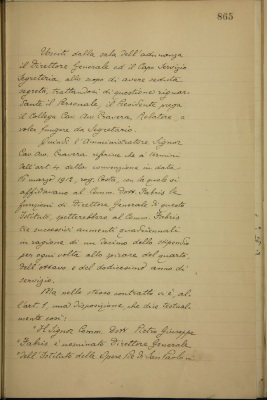 865
Usciti dalla sala dell'adunanza
il Direttore Generale ed il Capo Servizio
Segreteria, allo scopo di avere seduta
segreta, trattandosi di questione riguar-
dante il Personale, il Presidente prega
il collega Cav. Avv. Cravera, Relatore, a
voler fungere da Segretario.
Quindi l'Amministratore Signor
Cav. Avv. Cravera riferisce che a termini
dell'art. 4 della convenzione in data
15 marzo 1912, rog. Costa, con la quale si
affidavano al Comm. Dott. Fabris le
funzioni di Direttore Generale di questo
Istituto, spetterebbero al Comm. Fabris
tre successivi aumenti quadriennali
in ragione di un decimo dello stipendio
per ogni volta allo spirare del quarto,
dell'ottavo e del dodicesimo anno di
servizio.
Ma nello stesso contratto vi è, al-
l'art. 1, una disposizione, che dice testual-
mente così:
"Il Signor Comm. Dott. Pietro Giuseppe
"Fabris è nominato Direttore Generale
"dell'Istituto delle Opere Pie di San Paolo in